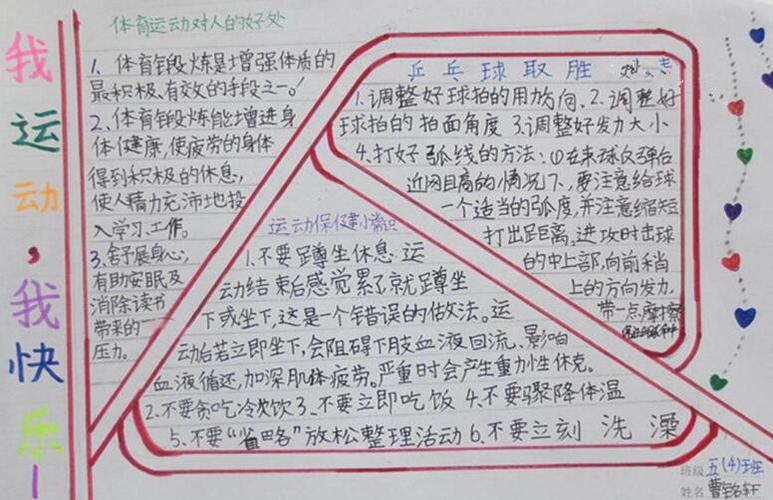 我运动，我快乐！
体育运动对人的好处
1、体育锻炼是增强体质的
最积极、有效的手段之一！
2、体育锻炼能增进身
体健康，使疲劳的身体
得到积极的休息，
使人精力充沛地投
入学习、工作。
3、舒展身心，
有助安眠及
消除读书
带来的
压力。
乒乓球取胜
1、调整好球拍的用力方向、2、调整好
球拍的拍面角度 3、调整好发力大小
4、打好弧线的方法：①在来球反弹后
近网且高的情况下，要注意给球
一个适当的弧度，并注意缩短
打出距离，进攻时击球
的中上部，向前稍
上的方向发力，
带一点摩擦
运动保健小常识
1、不要蹲坐休息 运
动结束后感觉累了就蹲坐
下或坐下，这是一个错误的做法。运
动后若立即坐下，会阻碍下肢血液回流、影响
血液循还，加深肌体疲劳。严重时会产生重力性休克。
2、不要贪吃冷饮 3、不要立即吃饭 4、不要骤降体温
5、不要“省略”放松整理活动 6、不要立刻 洗澡
班级 五(4)班
姓名 曹铭轩